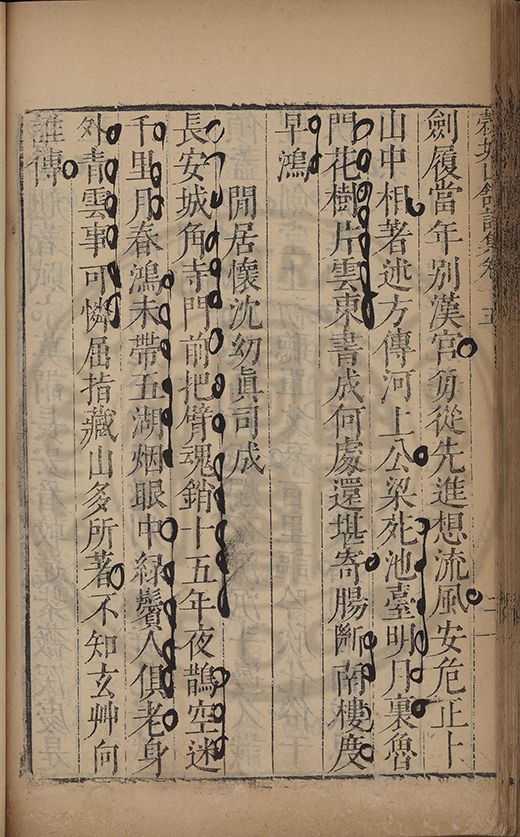 劍履當年別漢宮從先進想流風安危正卜
山中相著述方傳河上公梁苑池臺明月裏魯
門花樹片雲東書成何處還堪寄腸斷南樓度
早鴻
閒居懷沈幼眞司成
長安城角寺門前把臂魂銷十五年夜鵲空迷
千里月春鴻未帶五湖烟眼中緑鬢人俱老身
外青雲事可憐屈指藏山多所著不知玄艸向
誰傳